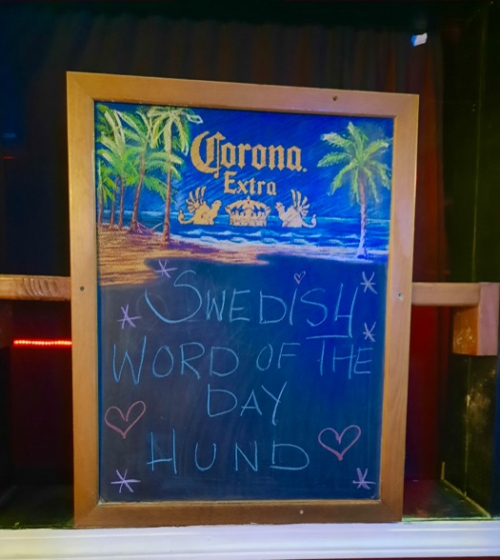 Corona.
Extra
SWEDISH
WORD OF THE
DAY
HUND